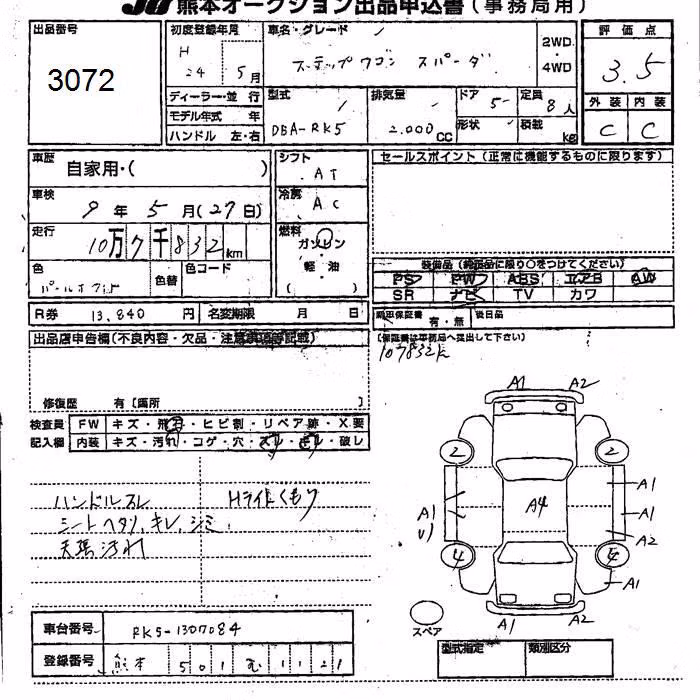 JU 熊本オークション出品申込書 (事務局用)
出品番号
3072
初度登録年月
H 24 5月
車名・グレード
ステップワゴン スパーダ
2WD・4WD
評価点
3.5
外装 内装
C C
ディーラー・並行
モデル年式 年
ハンドル 左・右
型式
DBA-RK5
排気量
2,000cc
ドア 5
定員 8人
形状
積載 kg
車歴
自家用・( )
シフト
AT
セールスポイント (正常に機能するものに限ります)
車検
9年5月(27日)
冷房
AC
走行
10万7千832km
燃料
ガソリン
軽油
( )
色
パールホワイト
色替
色コード
装備品 (純正品に限り○をつけてください)
PS PW ABS エアB AW
SR ナビ TV カワ
R券 13,840円
名変期限 月 日
新車保証書 有・無
後日品
(保証書は事務局へ提出して下さい)
107832k
出品店申告欄 (不良内容・欠品・注意事項等記載)
修復歴 有 [箇所 ]
検査員記入欄
FW キズ・飛石・ヒビ割・リペア跡・X.要
内装 キズ・汚れ・コゲ・穴・スレ・キレ・破レ
ハンドルスレ
Hライトくもり
シートヘタリ,キレ,シミ,
天張汚れ
A1 A2
2 2
A1
A4
A1
A1
U1
A2
4
A1
A1 A2
スペア
車台番号
RK5-1307084
登録番号
熊本 501 む 1121
型式指定
類別区分